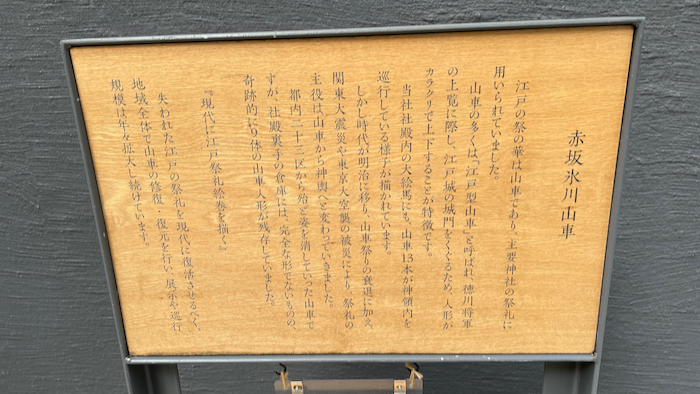 赤坂氷川山車
江戸の祭の華は山車であり、主要神社の祭礼に
用いられていました。
山車の多くは「江戸型山車」と呼ばれ、徳川将軍
の上覧に際し、江戸城の城門をくぐるため、人形が
カラクリで上下することが特徴です。
当社社殿内の大絵馬にも、山車13本が神領内を
巡行している様子が描かれています。
しかし時代が明治に移り、山車祭りの衰退に加え、
関東大震災や東京大空襲の被災により、祭礼の
主役は山車から神輿へと変わっていきました。
都内二十三区から殆ど姿を消していった山車で
すが、社殿裏手の倉庫には、完全な形でないものの、
奇跡的に9体の山車人形が残存していました。
『現代に江戸祭礼絵巻を描く』
失われた江戸の祭礼を現代に復活させるべく、
地域全体で山車の修復・復元を行い、展示や巡行
規模は年々拡大し続けています。